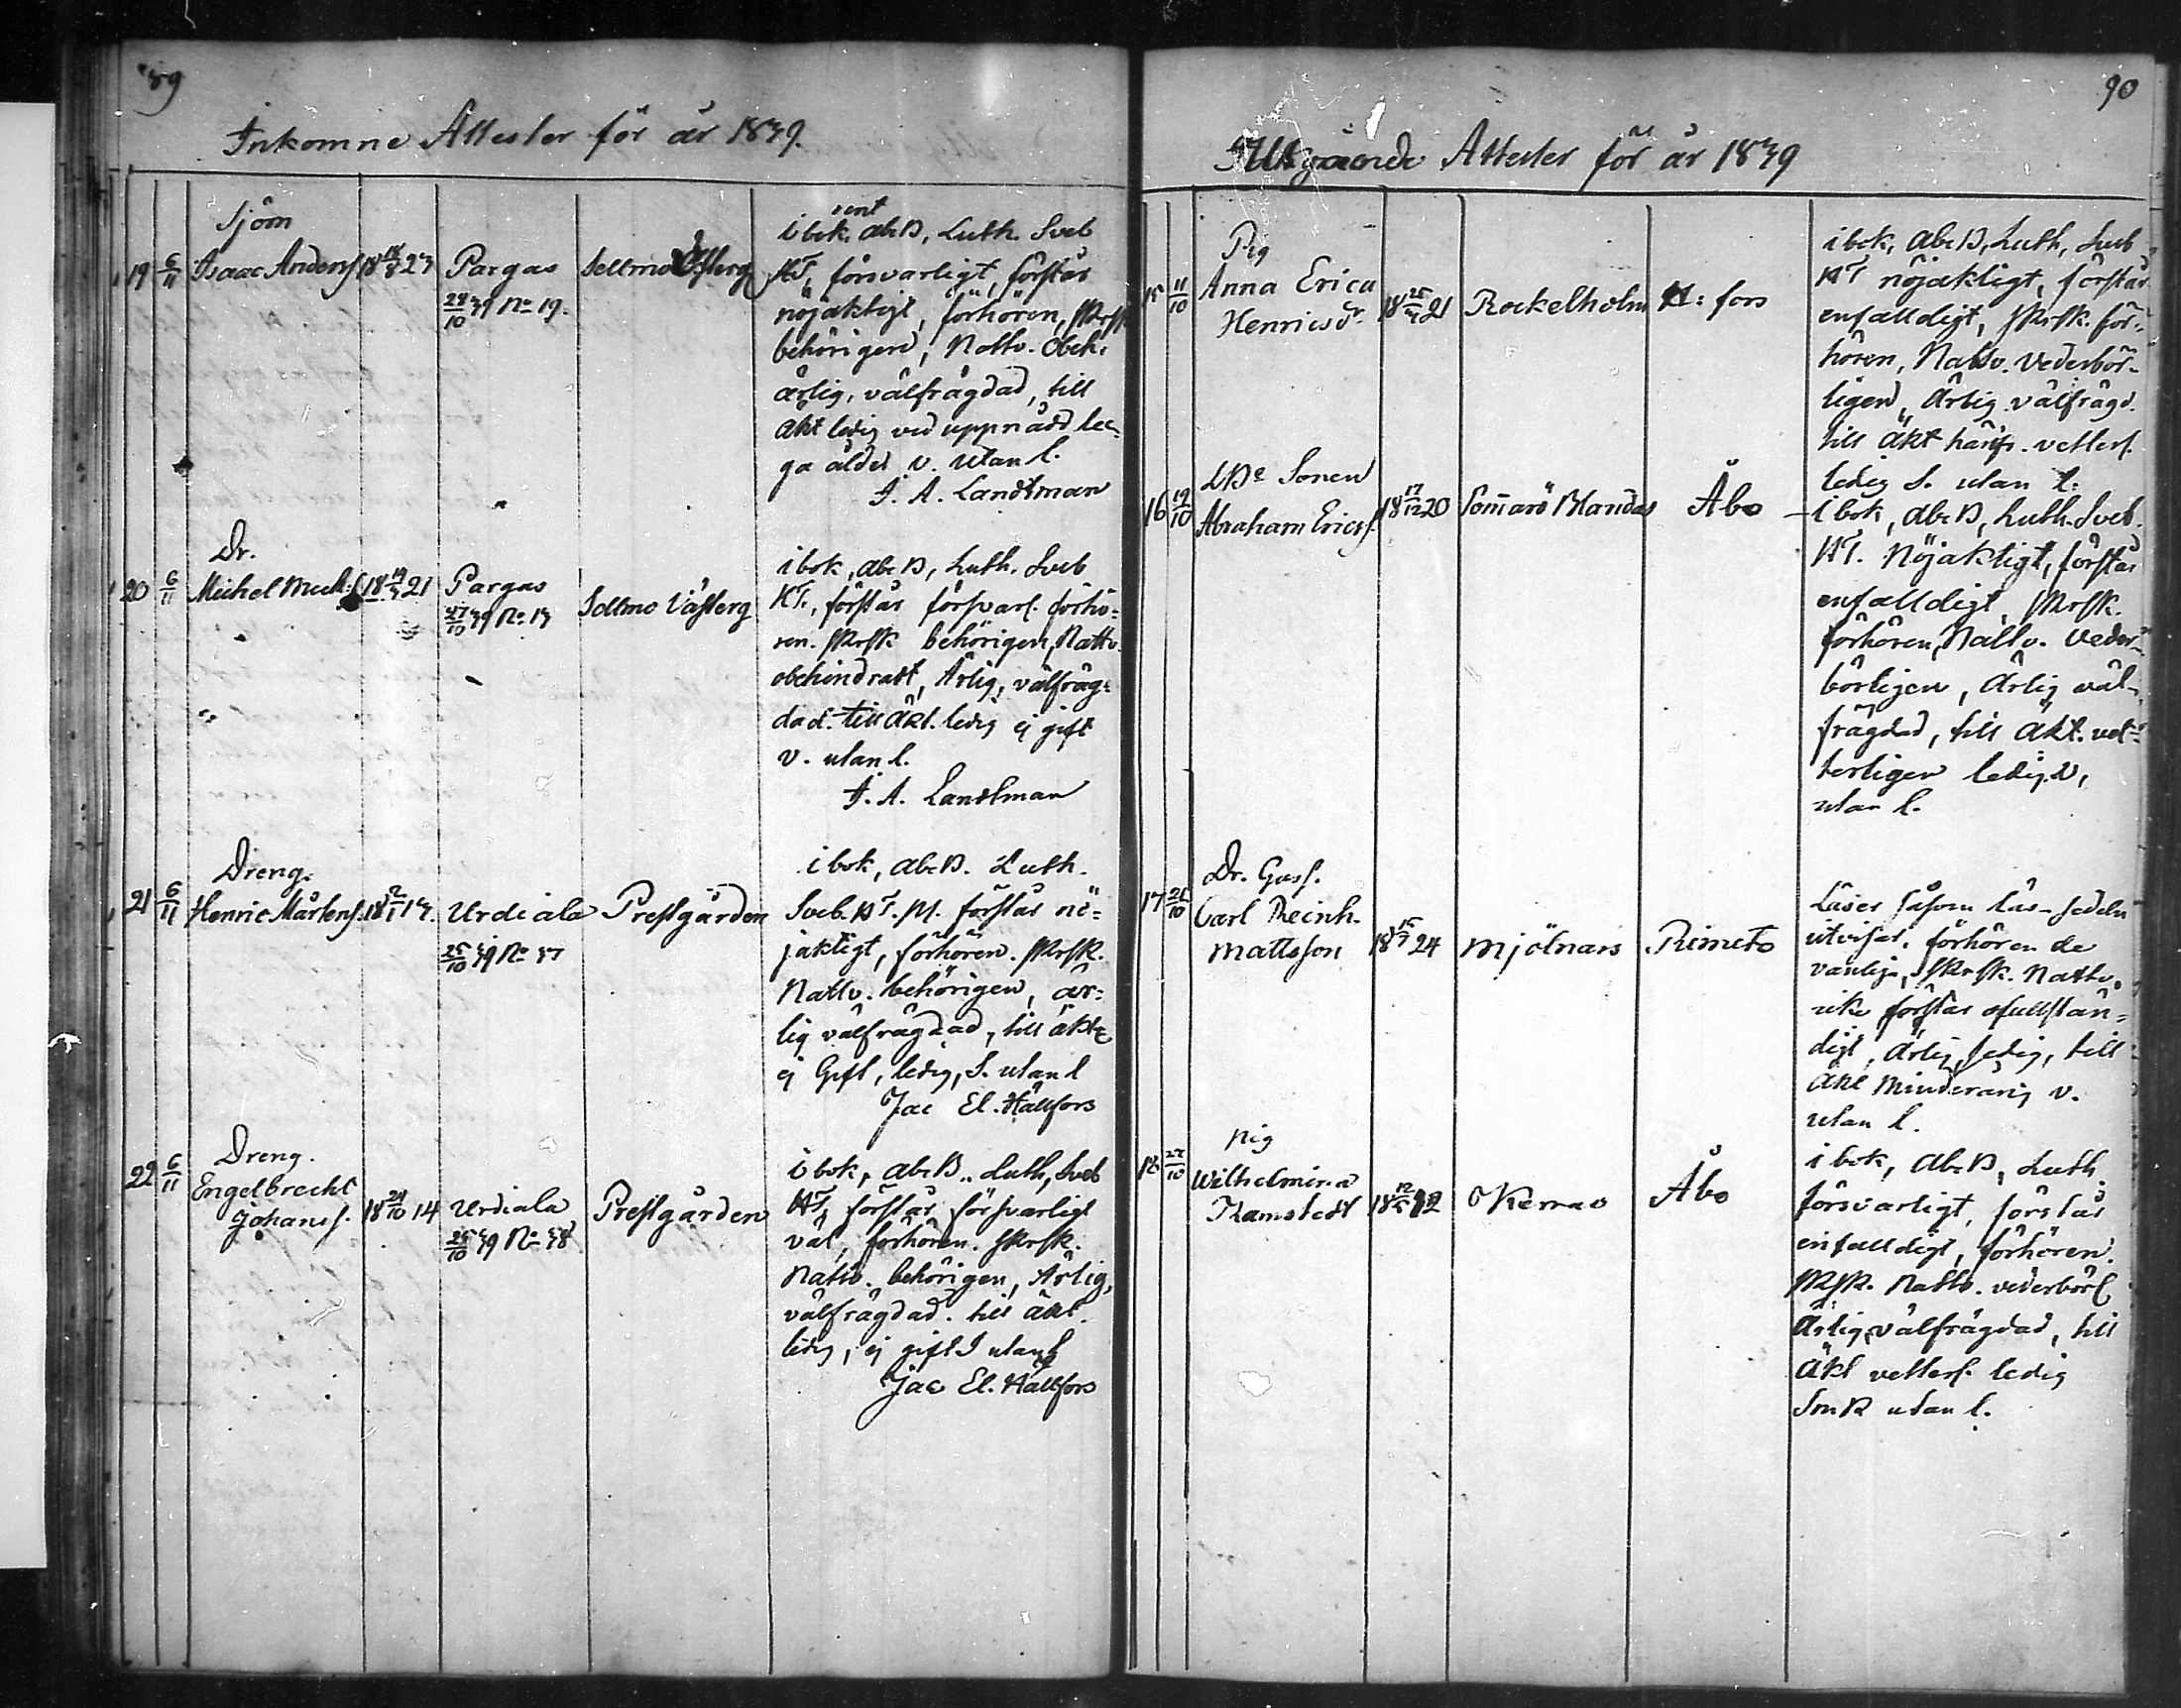 89
Inkomne Attester för år 1839.
Sjöm
19 6/11 Isaac Anders. 18 14/8 23 Pargas Sellmo Österg
28/10 39 No 19.
rent
i bok. Abc B, Luth. Sveb
HT, försvarligt, förstår
nöjaktigt, förhören, Skrsk
behörigen, Nattv. Obeh.
ärlig, välfrägdad, till
Äkt ledig ved uppnådd lee-
ga ålder v. utan l.
F. A. Landtman
Dr.
20 6/11 Michel Mich. 18 19/3 21 Pargas Sellmo Västerg
27/10 39 No 13
i bok, Abc B, Luth. Sveb
HT, förstår försvarl. förhö-
ren. Skrsk behörigen, Nattv.
obehindradt, Ärlig, välfräg-
dad. till Äkt. ledig ej gift
v. utan l.
F. A. Landtman
Dreng.
21 6/11 Henric Mårtens. 18 2/1 13. Urdiala Prestgården
25/10 39 No 37
i bok, Abc B. Luth.
Sveb. HT. Ps. förstår nö-
jaktigt, förhören. Skrsk.
Nattv. behörigen, är-
lig välfrägdad, till äkte
ej Gift, ledig, S. utan l
Jac El. Hällfors
Dreng.
22 6/11 Engelbrecht
Johans. 18 24/10 14 Urdiala Prestgården
25/10 39 No 38
i bok, Abc B. Luth, Sveb
HT, förstår försvarligt
väl, förhören. Skrsk.
Nattv. behörigen, Ärlig,
välfrägdad. till äkt.
ledig, ej gift S utan l
Jac El. Hällfors
90
Utgående Attester för år 1839
Pig
15 11/10 Anna Erica
Henricsdr 18 25/3 21 Rockelholm H:fors
i bok, Abc B, Luth, Sveb
HT nöjaktigt, förstår
enfalldigt, Skrsk. för-
hören, Nattv. vederbör-
ligen, Ärlig välfrägd.
till äkt härifr. vetterl.
ledig S. utan l.
Sonen
16 19/10 Abraham Erics. 18 17/12 20 Som̄arö Blandas Åbo
i bok, Abc B, Luth. Sveb.
HT. Nöjaktigt, förstår
enfalldigt, Skrsk.
förhören, Nattv. veder-
börligen, Ärlig väl-
frägdad, till Äkt. vet-
terligen ledig. V,
utan l.
Dr. Goss.
17 26/10 Carl Reinh.
Mattsson 18 15/7 24 Mjölnars Rimito
Läser såsom läs-sedeln
utvisar. förhören de
vanliga, Skrsk. Nattv.
icke förstår ofullstän-
digt, Ärlig, sedig, till
äkt Minderårig v.
utan l.
pig
18 27/10 Wilhelmina
Ramstedt 18 12/5 12 Kerrao Åbo
i bok, Abc B, Luth.
försvarligt, förstår
enfalldigt, förhören
Skrsk. Nattv. vederbörl
Ärlig, välfrägdad, till
äkt vetterl. ledig
utan l.